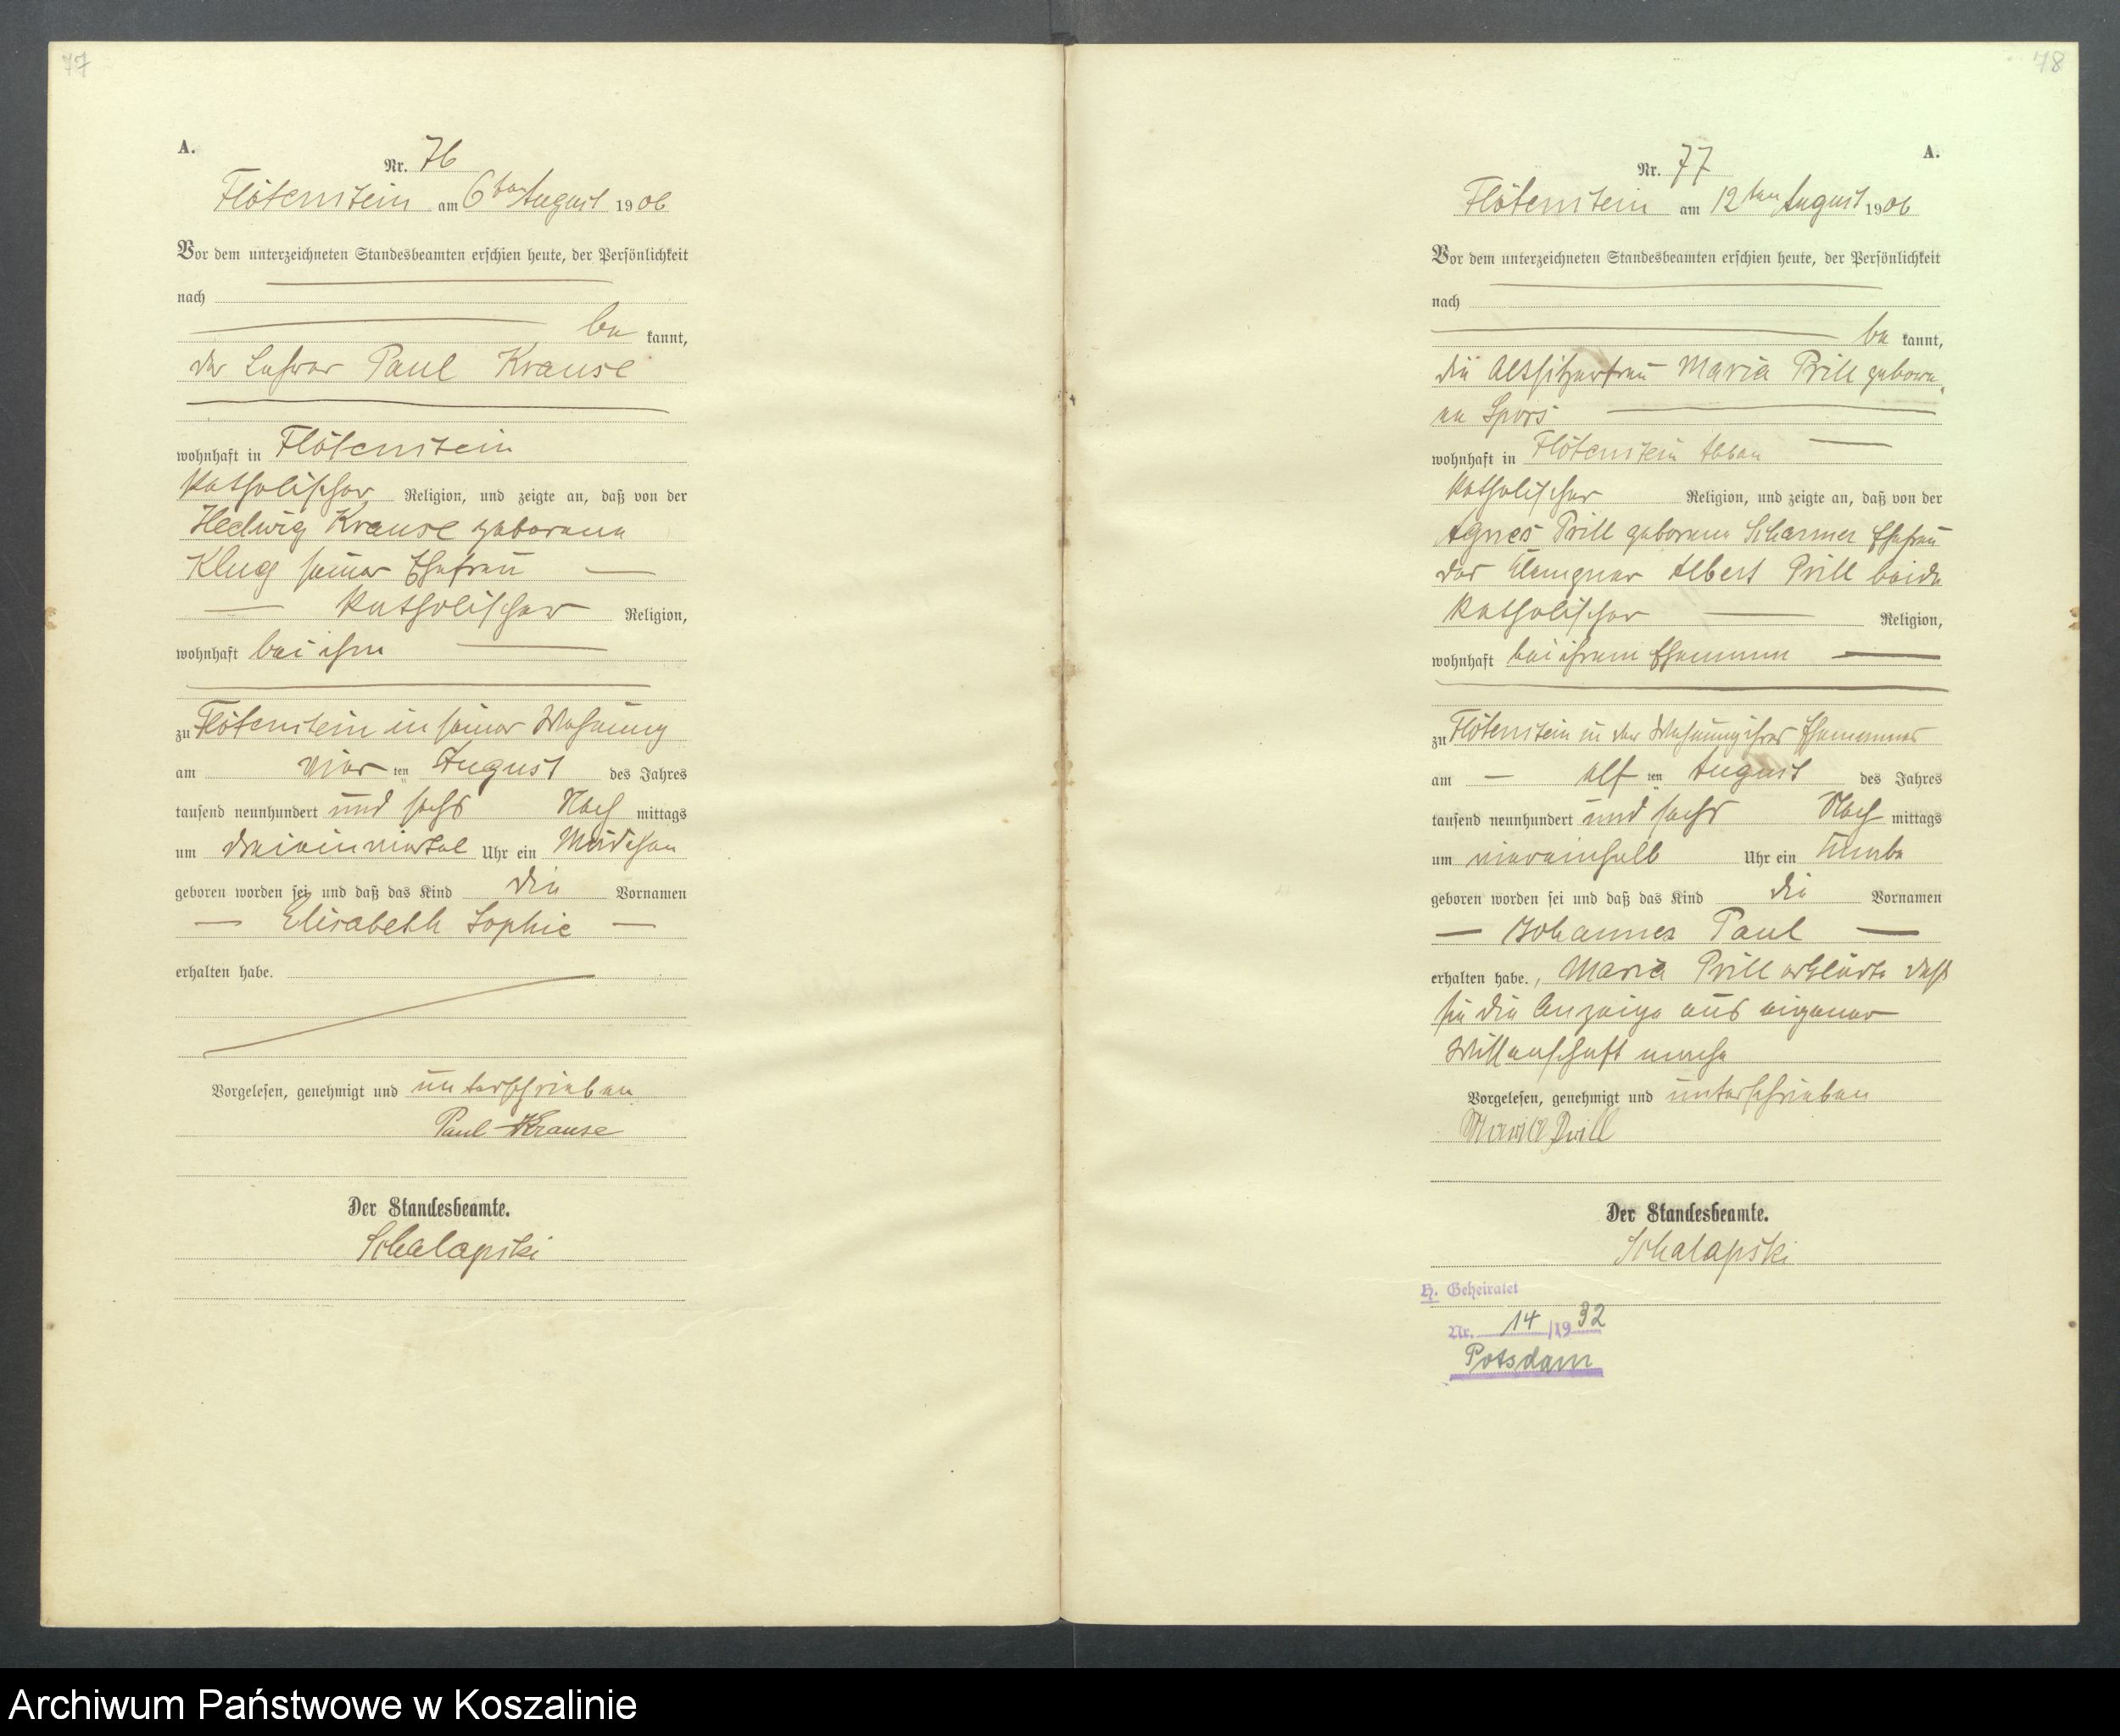 77
A.
Nr. 76
Flötenstein am 6ten August 1906
Vor dem unterzeichneten Standesbeamten erschien heute, der Persönlichkeit
nach
be kannt,
der Lehrer Paul Krause
wohnhaft in Flötenstein
katholischer Religion, und zeigte an, daß von der
Hedwig Krause geborene
Klug seiner Ehefrau
katholischer Religion,
wohnhaft bei ihm
zu Flötenstein in seiner Wohnung
am vier ten August des Jahres
tausend neunhundert und sechs Nach mittags
um dreieinviertel Uhr ein Mädchen
geboren worden sei und daß das Kind die Vornamen
Elisabeth Sophie
erhalten habe.
Vorgelesen, genehmigt und unterschrieben
Paul Krause
Der Standesbeamte.
Schalapski
78
A.
Nr. 77
Flötenstein am 12ten August 1906
Vor dem unterzeichneten Standesbeamten erschien heute, der Persönlichkeit
nach
be kannt,
die Altsitzerfrau Maria Prill gebore-
ne Spors
wohnhaft in Flötenstein Abbau
katholischer Religion, und zeigte an, daß von der
Agnes Prill geborene Scharmer Ehefrau
des Albert Prill beide
katholischer Religion,
wohnhaft bei ihrem Ehemann
zu Flötenstein in der Wohnung ihres Ehemannes
am elf ten August des Jahres
tausend neunhundert und sechs Nach mittags
um viereinhalb Uhr ein Knabe
geboren worden sei und daß das Kind die Vornamen
Johannes Paul
erhalten habe., Maria Prill erklärte daß
sie die Anzeige aus eigener
Wissenschaft mache
Vorgelesen, genehmigt und unterschrieben
Maria Prill
Der Standesbeamte.
Schalapski
H. Geheiratet
Nr. 14 /1932
Potsdam
Archiwum Państwowe w Koszalinie